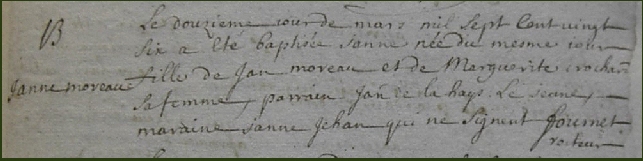 B
Le douzieme jour de mars mil sept cent vingt
six a eté baptisée janne née du mesme jour
janne moreau
fille de jan moreau et de Marguerite rochar
sa femme, parrain jan de la hays Le jeune,
maraine janne jehan qui ne signent fournet
recteur